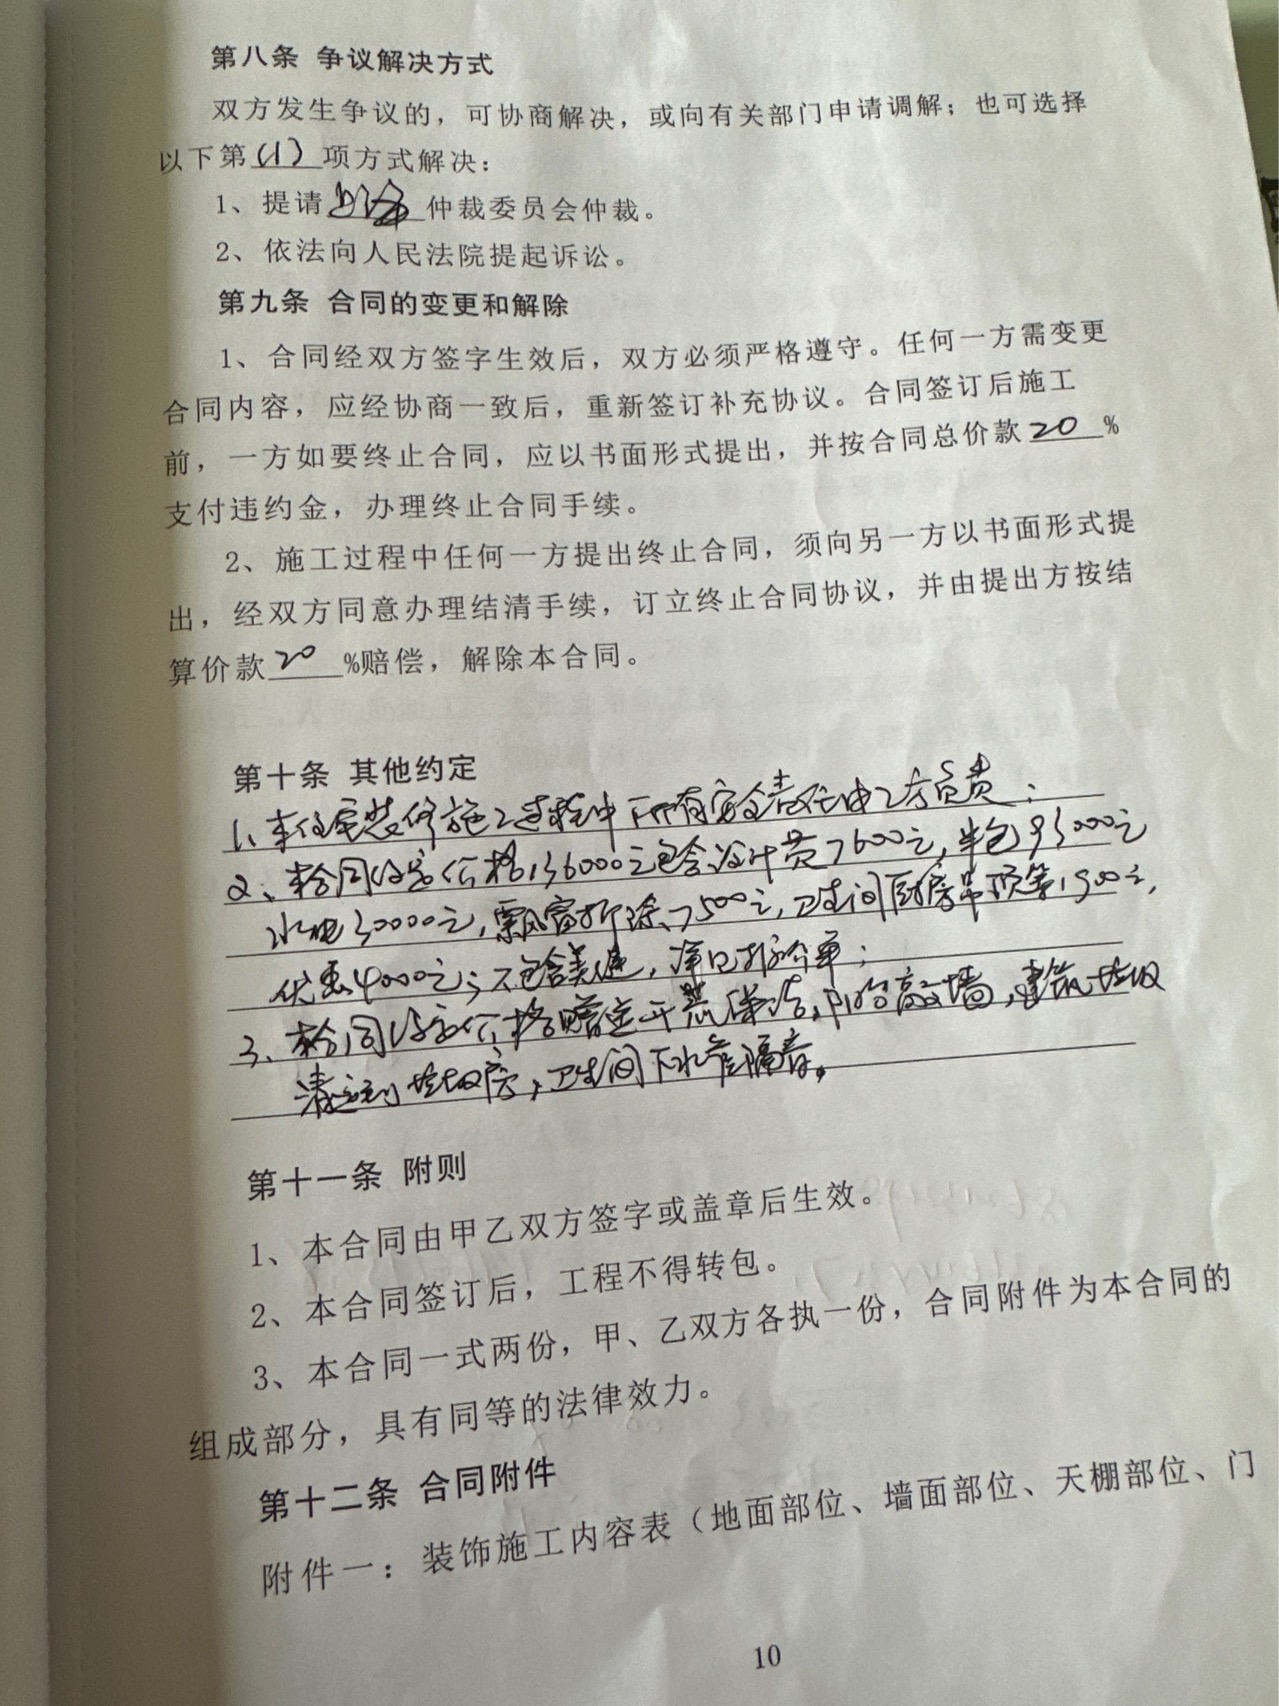 第八条 争议解决方式
双方发生争议的，可协商解决，或向有关部门申请调解；也可选择
以下第(1)项方式解决：
1、提请上海仲裁委员会仲裁。
2、依法向人民法院提起诉讼。
第九条 合同的变更和解除
1、合同经双方签字生效后，双方必须严格遵守。任何一方需变更
合同内容，应经协商一致后，重新签订补充协议。合同签订后施工
前，一方如要终止合同，应以书面形式提出，并按合同总价款20%
支付违约金，办理终止合同手续。
2、施工过程中任何一方提出终止合同，须向另一方以书面形式提
出，经双方同意办理结清手续，订立终止合同协议，并由提出方按结
算价款20%赔偿，解除本合同。
第十条 其他约定
1、本住宅装修施工过程中所有安全责任由乙方负责；
2、本合同约定价格136000元包含设计费7600元，半包93000元
水电30000元，飘窗拆除7500元，卫生间厨房吊顶等1900元，
优惠4000元；不包含美缝，详见报价单；
3、本合同约定价格赠送开荒保洁，阳台高墙，建筑垃圾
清运到垃圾房，卫生间下水管隔音。
第十一条 附则
1、本合同由甲乙双方签字或盖章后生效。
2、本合同签订后，工程不得转包。
3、本合同一式两份，甲、乙双方各执一份，合同附件为本合同的
组成部分，具有同等的法律效力。
第十二条 合同附件
附件一：装饰施工内容表（地面部位、墙面部位、天棚部位、门
10